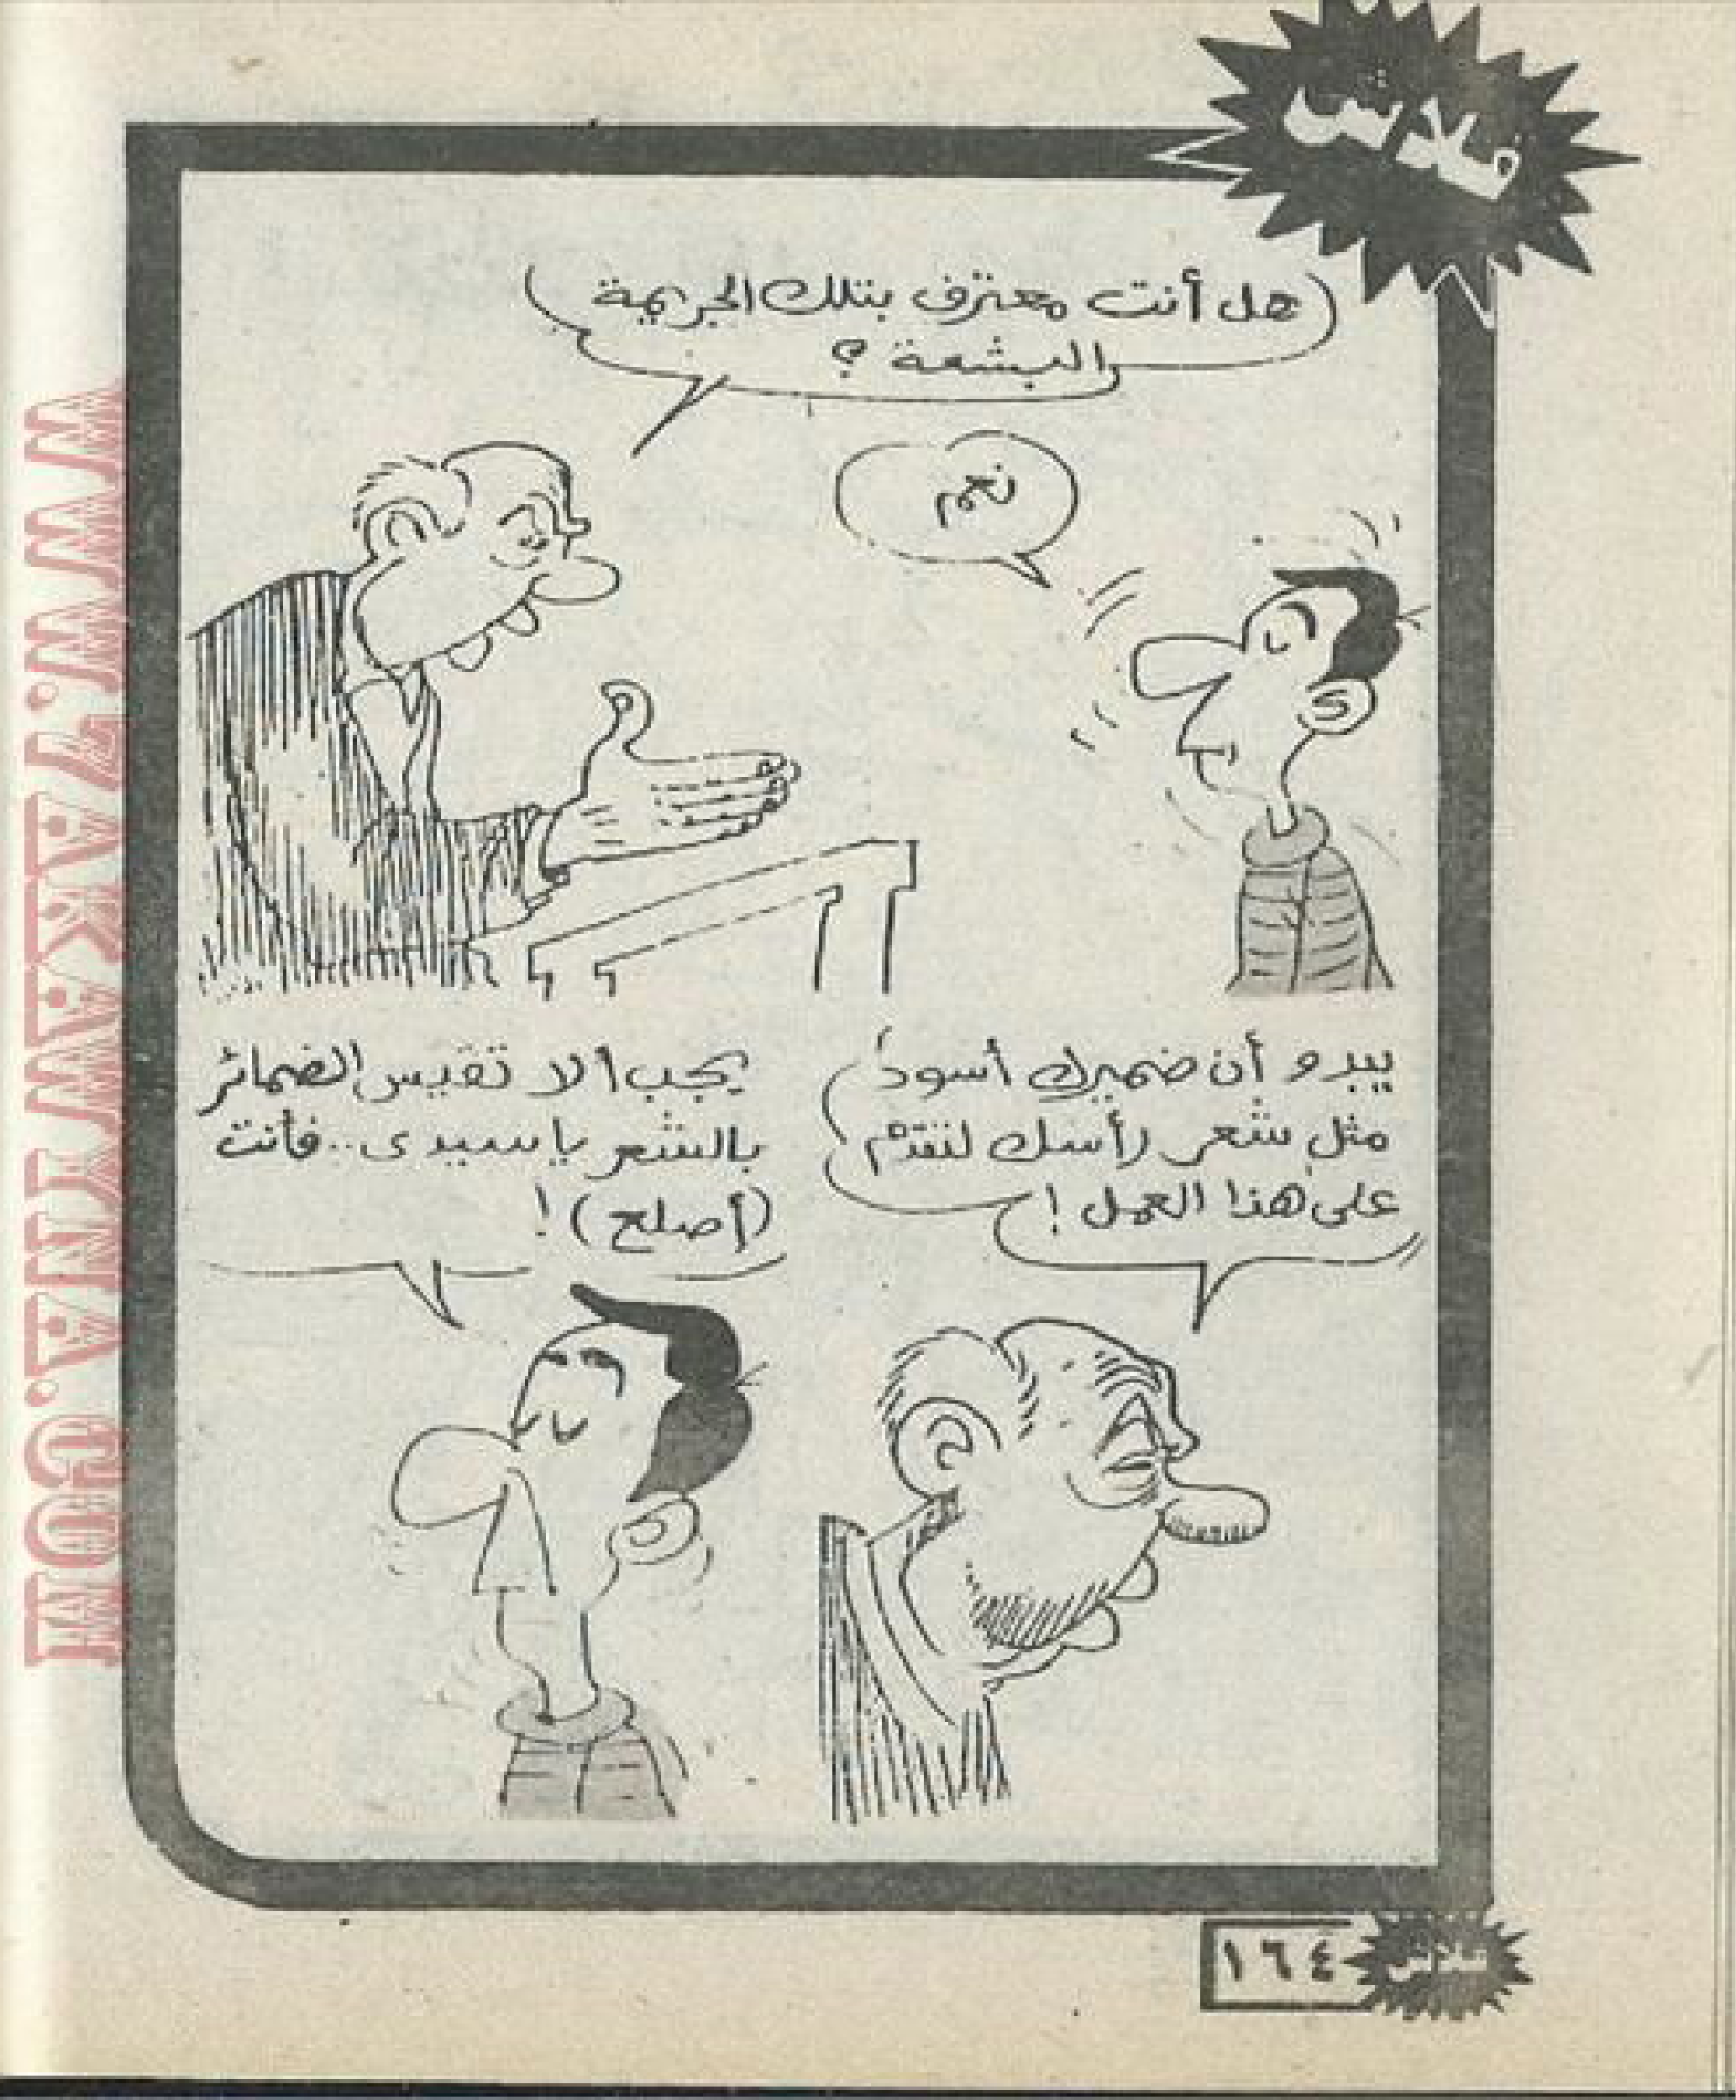 فلاش
هل أنت معترف بتلك الجريمة
البشعة ؟
نعم
يبدو أن ضميرك أسود
مثل شعر رأسك لتقدم
على هذا العمل !
يجب ألا تقيس الضمائر
بالشعر يا سيدى .. فأنت
(أصلع) !
فلاش ١٦٤
WWW.7AKAWITNA.COM